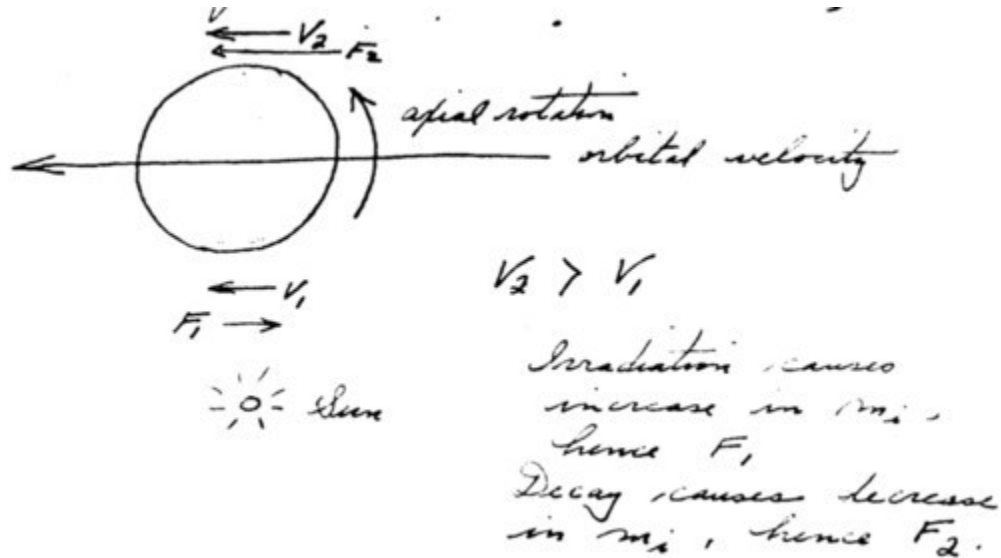 V₂
F₂
axial rotation
orbital velocity
V₂ > V₁
V₁
F₁
Sun
Irradiation causes
increase in mᵢ,
hence F₁
Decay causes decrease
in mᵢ, hence F₂.